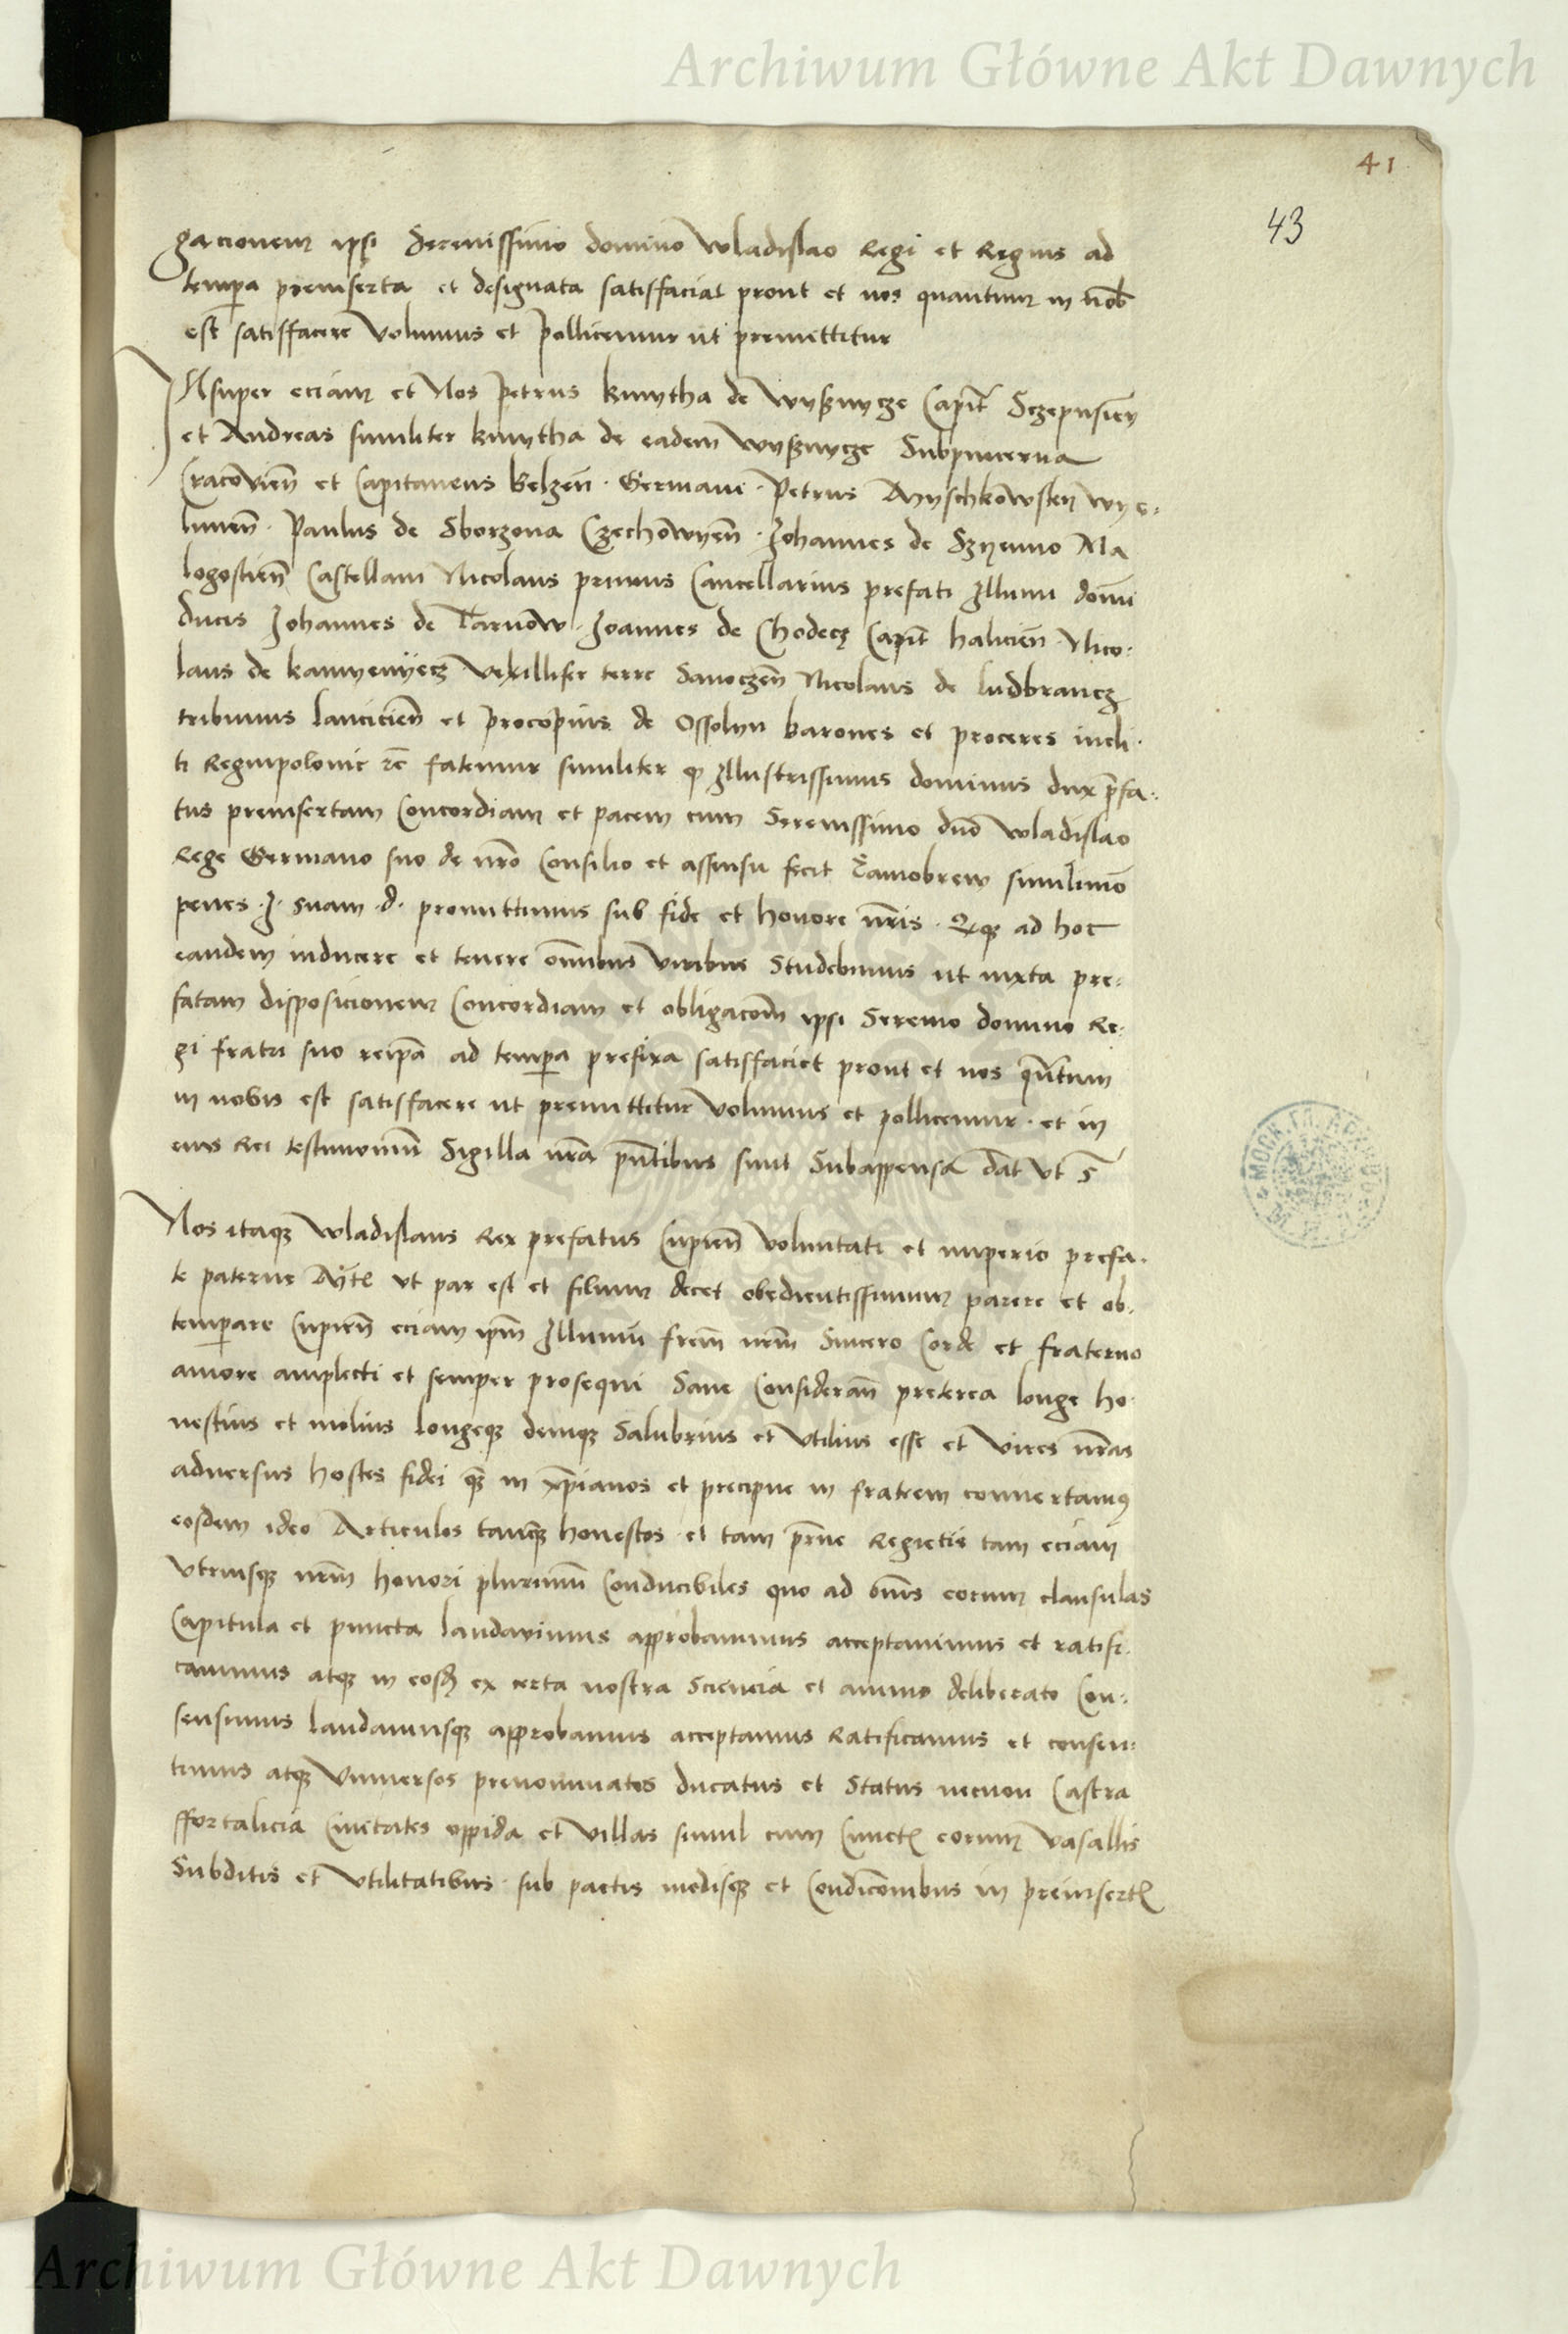 Archiwum Główne Akt Dawnych
41
43
gacionem ipsi Serenissimo domino Wladislao Regi et Regnis ad
tempa preinserta et designata satisfaciat prout et nos quantum in nob
est satisfacere volumus et pollicemur ut premittitur
INsuper eciam et Nos Petrus kmytha de Wyßnycze Capit Sczepusien
et Andreas similiter kmytha de eadem Wyßnycze Subpincerna
Cracovien et Capitaneus Belzen . Germani . Petrus Myschkowsky Wye-
lunen . Paulus de Sborzona Czechowyen . Johannes de Szyenno Ma
logostien Castellani Nicolaus primus Cancellarius prefati Illumi domi
ducis Johannes de Tarnow . Joannes de Chodecz Capit halicien . Nico-
laus de kamyenyecz Vexillifer terre Sanoczen Nicolaus de ludbrancz
tribunus lancicien et Procopius de Ossolyn barones et proceres incli-
ti Regnipolonie rc fatemur similiter q Illustrissimus dominus dux prefa-
tus preinsertam Concordiam et pacem cum Serenissimo duo Wladislao
Rege Germano suo de nro Consilio et assensu fecit
penes . I . suam . d . promittimus sub fide et honore nris . Qq ad hoc
eandem inducere et tenere omnibus viribus Studebimus ut iuxta pre-
fatam disposicionem Concordiam et obligacom ipsi Seremo domino Re-
gi fratri suo reipa ad tempa prefixa satisfaciet prout et nos quntum
in nobis est satisfacere ut premittitur volumus et pollicemur . et in
eius Rei testimonium Sigilla nra pntibus sunt Subappensa dat Vt S
Nos itaq Wladislaus Rex prefatus Cupien voluntati et imperio prefa-
te paterne Mtis Vt par est et filium decet obedientissimum parere et ob-
temperare Cupien eciam ipm Illumu frem nrm Sincero Corde et fraterno
amore amplecti et semper prosequi Sane Consideran preterea longe ho-
nestius et melius longeq deniq Salubrius et Vtilius esse et vires nras
adversus hostes fidei q in xpianos et precipue in fratrem convertamus
eosdem ideo Articulos tanq honestos et tam prne Regietis tam eciam
Vtriusq nrm honori plurimum Conducibiles quo ad omis eorum clausulas
Capitula et puncta laudavimus approbavimus acceptavimus et ratifi-
cavimus atq in eosd ex certa nostra Sciencia et animo deliberato Con-
sensimus laudamusq approbamus acceptamus Ratificamus et consen-
timus atq Vniversos prenominatos ducatus et Status necnon Castra
ffortalicia Civitates oppida et villas simul cum Cunctis eorum Vasallis
Subditis et Vtilitatibus . sub pactis modisq et Condicionibus in preinsertis
Archiwum Główne Akt Dawnych